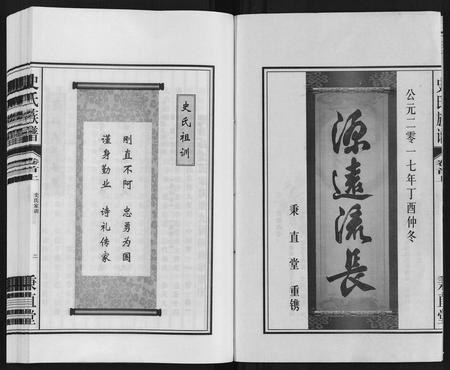 公元二零一七年丁酉仲冬
源遠流長
秉直堂 重镌
史氏族谱
卷首
史氏祖训
刚直不阿 忠勇为国
谨身勤业 诗礼传家
史氏族谱
卷首二
史氏家训
二
秉直堂